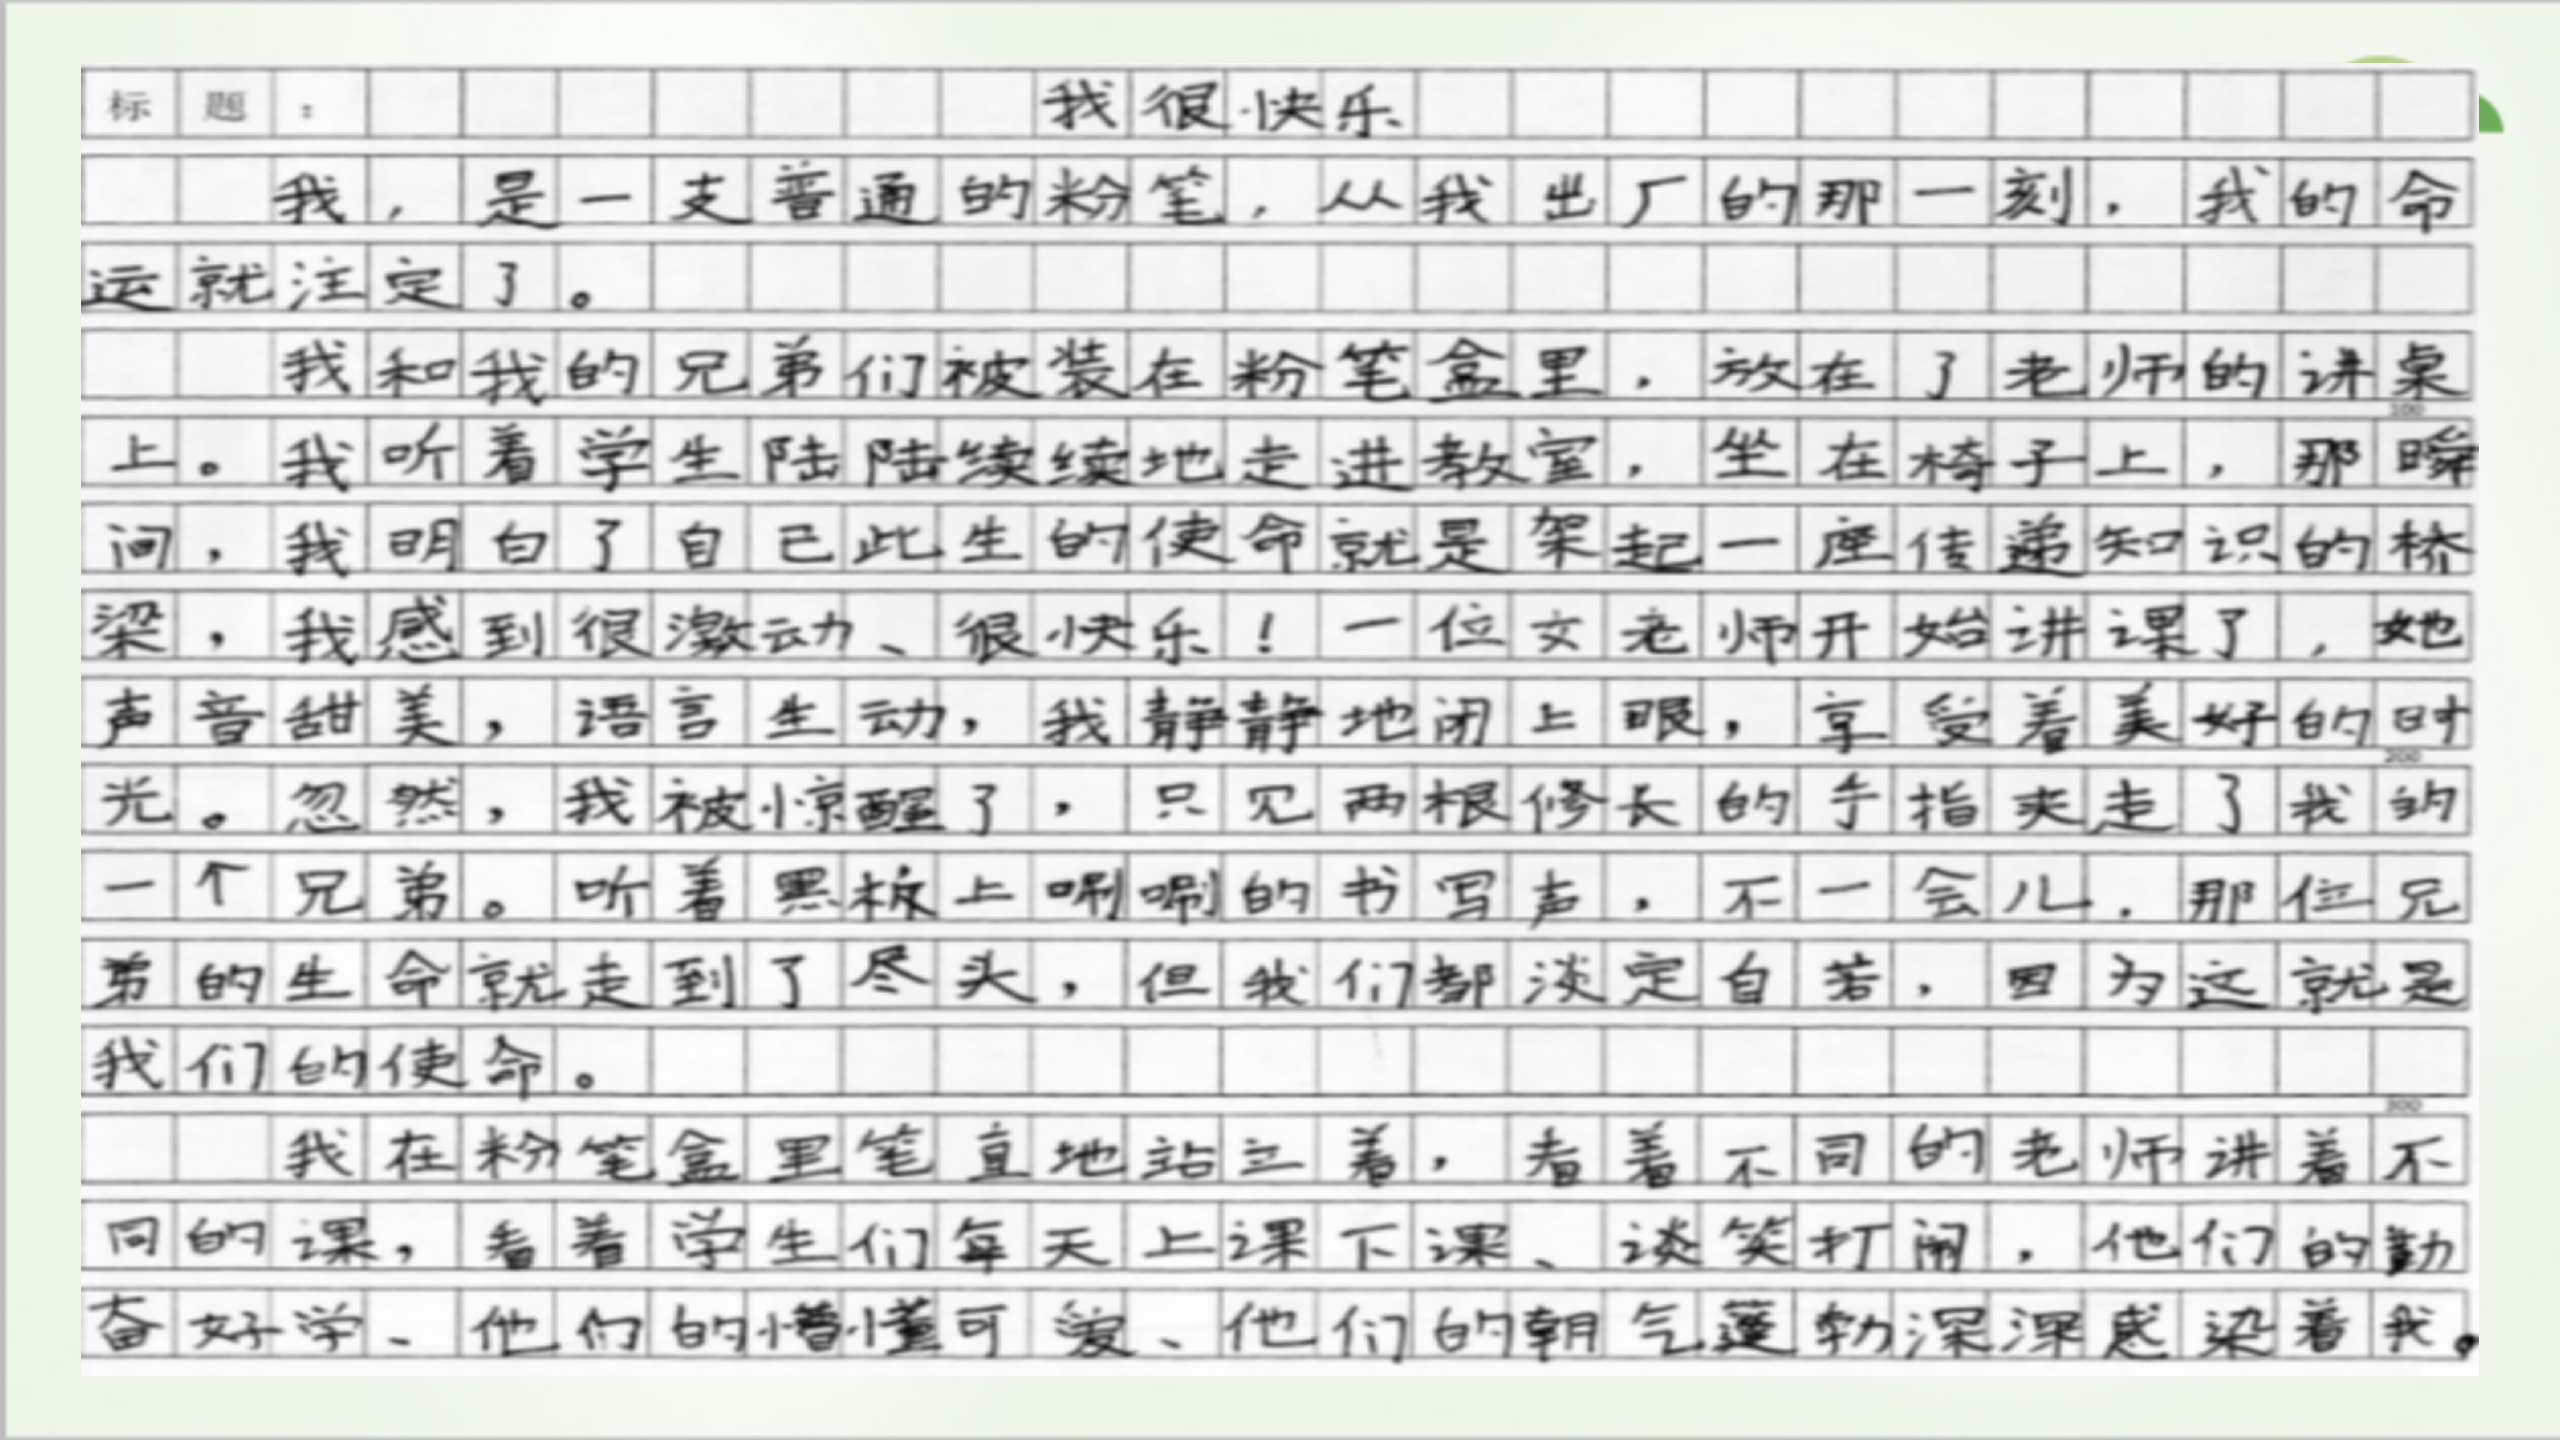 标题：我很快乐
我，是一支普通的粉笔，从我出厂的那一刻，我的命
运就注定了。
我和我的兄弟们被装在粉笔盒里，放在了老师的讲桌
100
上。我听着学生陆陆续续地走进教室，坐在椅子上，那瞬
间，我明白了自己此生的使命就是架起一座传递知识的桥
梁，我感到很激动、很快乐！一位女老师开始讲课了，她
声音甜美，语言生动，我静静地闭上眼，享受着美好的时
200
光。忽然，我被惊醒了，只见两根修长的手指夹走了我的
一个兄弟。听着黑板上唰唰的书写声，不一会儿，那位兄
弟的生命就走到了尽头，但我们都淡定自若，因为这就是
我们的使命。
300
我在粉笔盒里笔直地站立着，看着不同的老师讲着不
同的课，看着学生们每天上课下课、谈笑打闹，他们的勤
奋好学、他们的懵懂可爱、他们的朝气蓬勃深深感染着我。